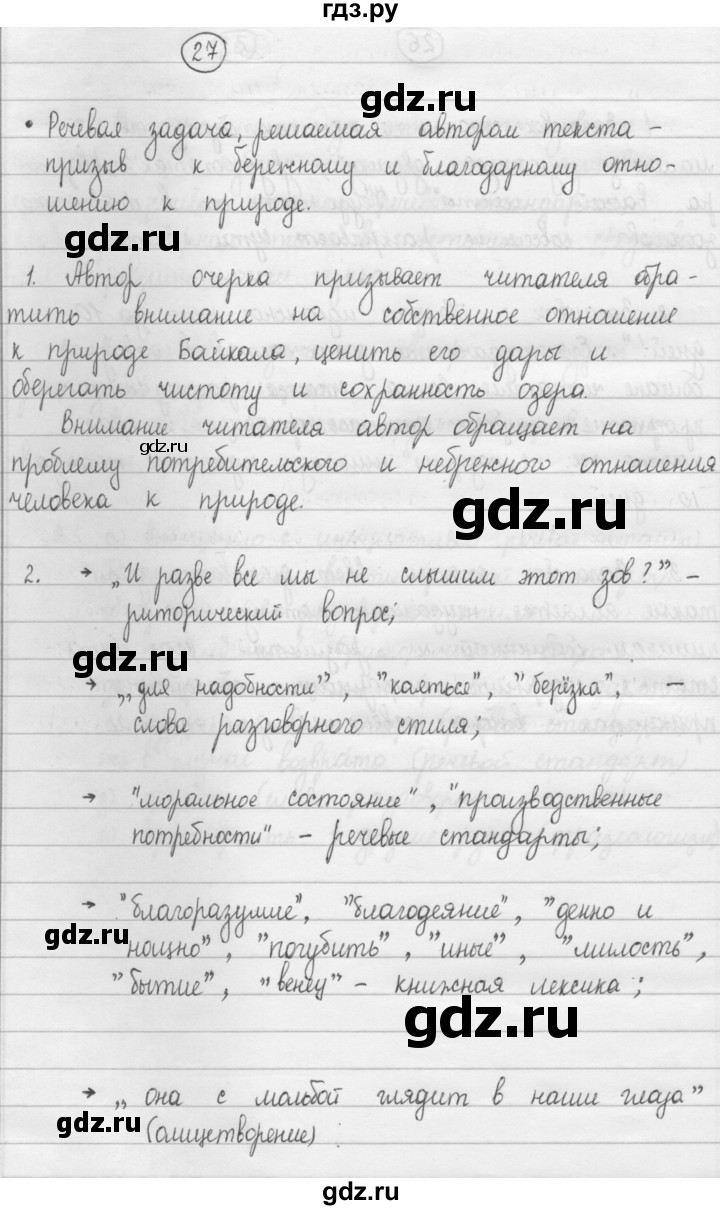 гдз.ру
27
gdz.ru
• Речевая задача, решаемая автором текста –
призыв к бережному и благодарному отно-
шению к природе.
gdz.ru
1. Автор очерка призывает читателя обра-
тить внимание на собственное отношение
к природе Байкала, ценить его дары и
оберегать чистоту и сохранность озера.
Внимание читателя автор обращает на
gdz.ru
проблему потребительского и небрежного отношения
человека к природе.
gdz.ru
2. → „И разве все мы не слышим этот зов?” –
риторический вопрос;
gdz.ru
→ „для надобности”, "каяться", "берёзка", –
слова разговорного стиля;
→ "моральное состояние", "производственные
потребности" – речевые стандарты;
→ "благоразумие", "благодеяние", "денно и
gdz.ru
нощно", "погубить", "иные", "милость",
"бытие", "венец" – книжная лексика;
gdz.ru
→ „она с мольбой глядит в наши глаза”
gdz.ru
(олицетворение)
gdz.ru